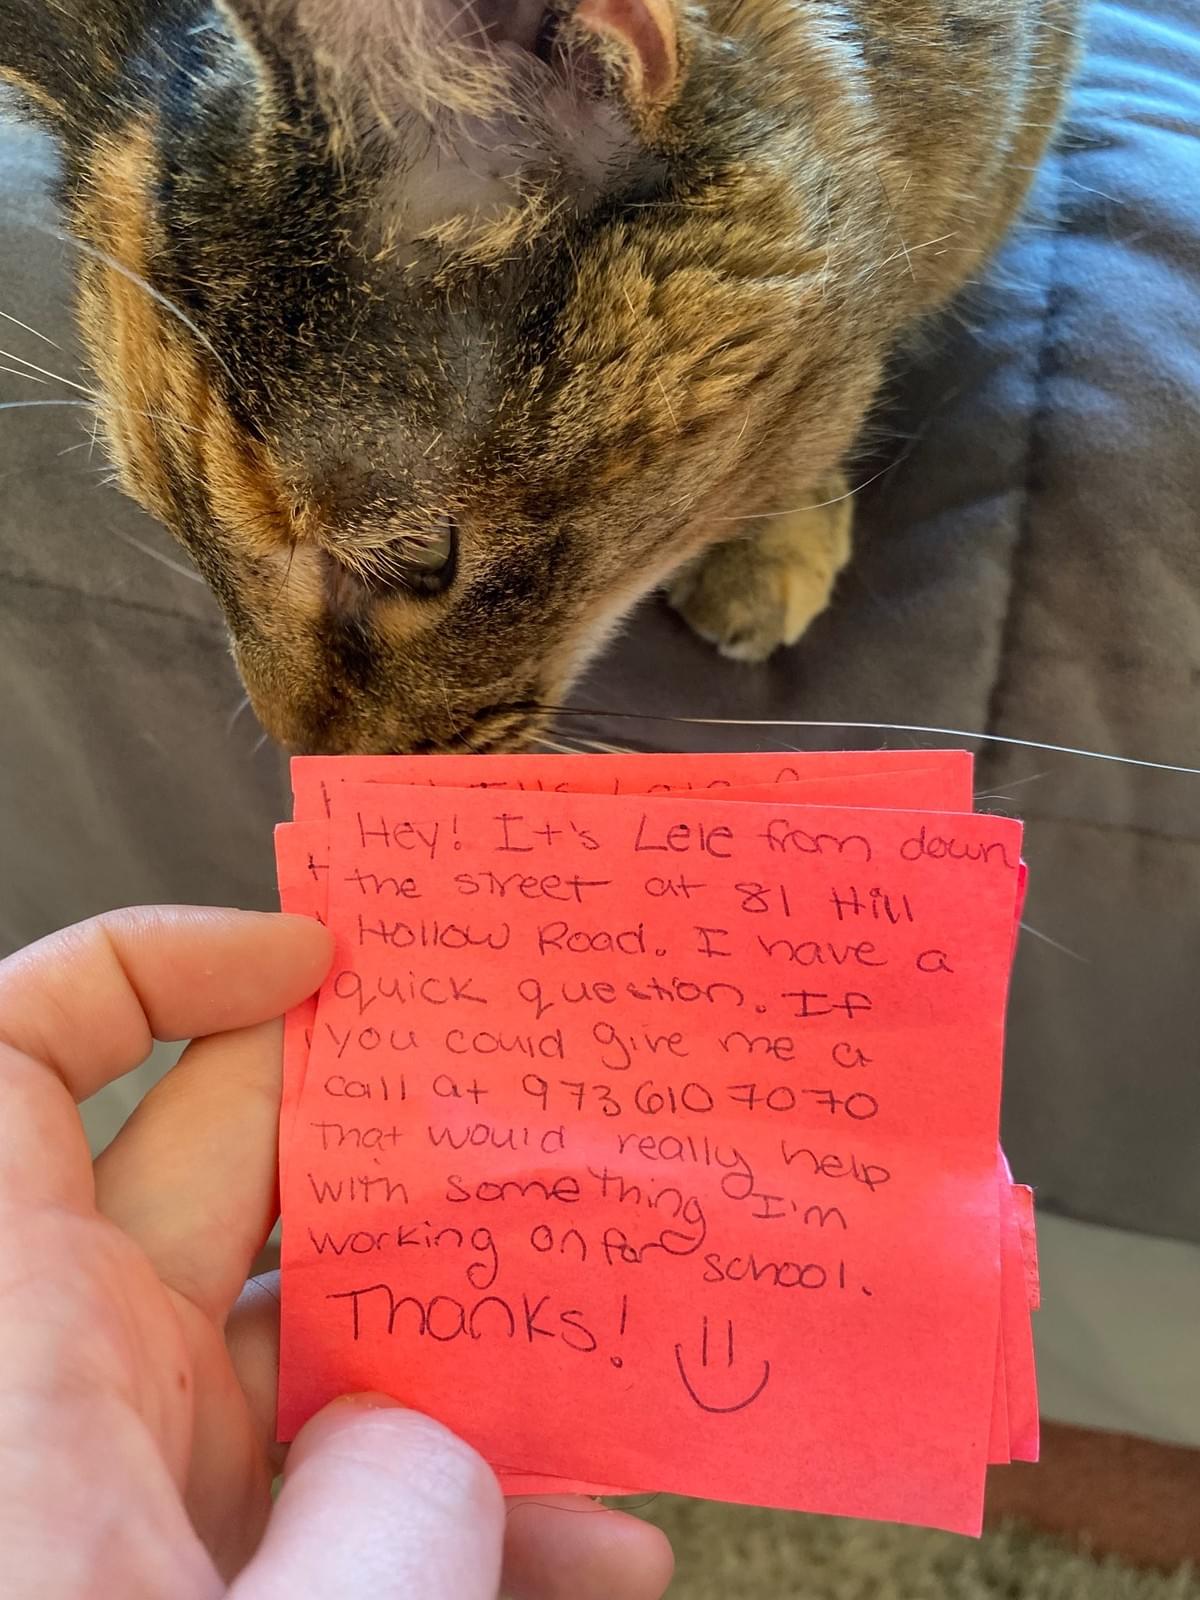 Hey! It's Lele from down
the street at 81 Hill
Hollow Road. I have a
quick question. If
you could give me a
call at 973 610 7070
that would really help
with something I'm
working on for school.
Thanks!